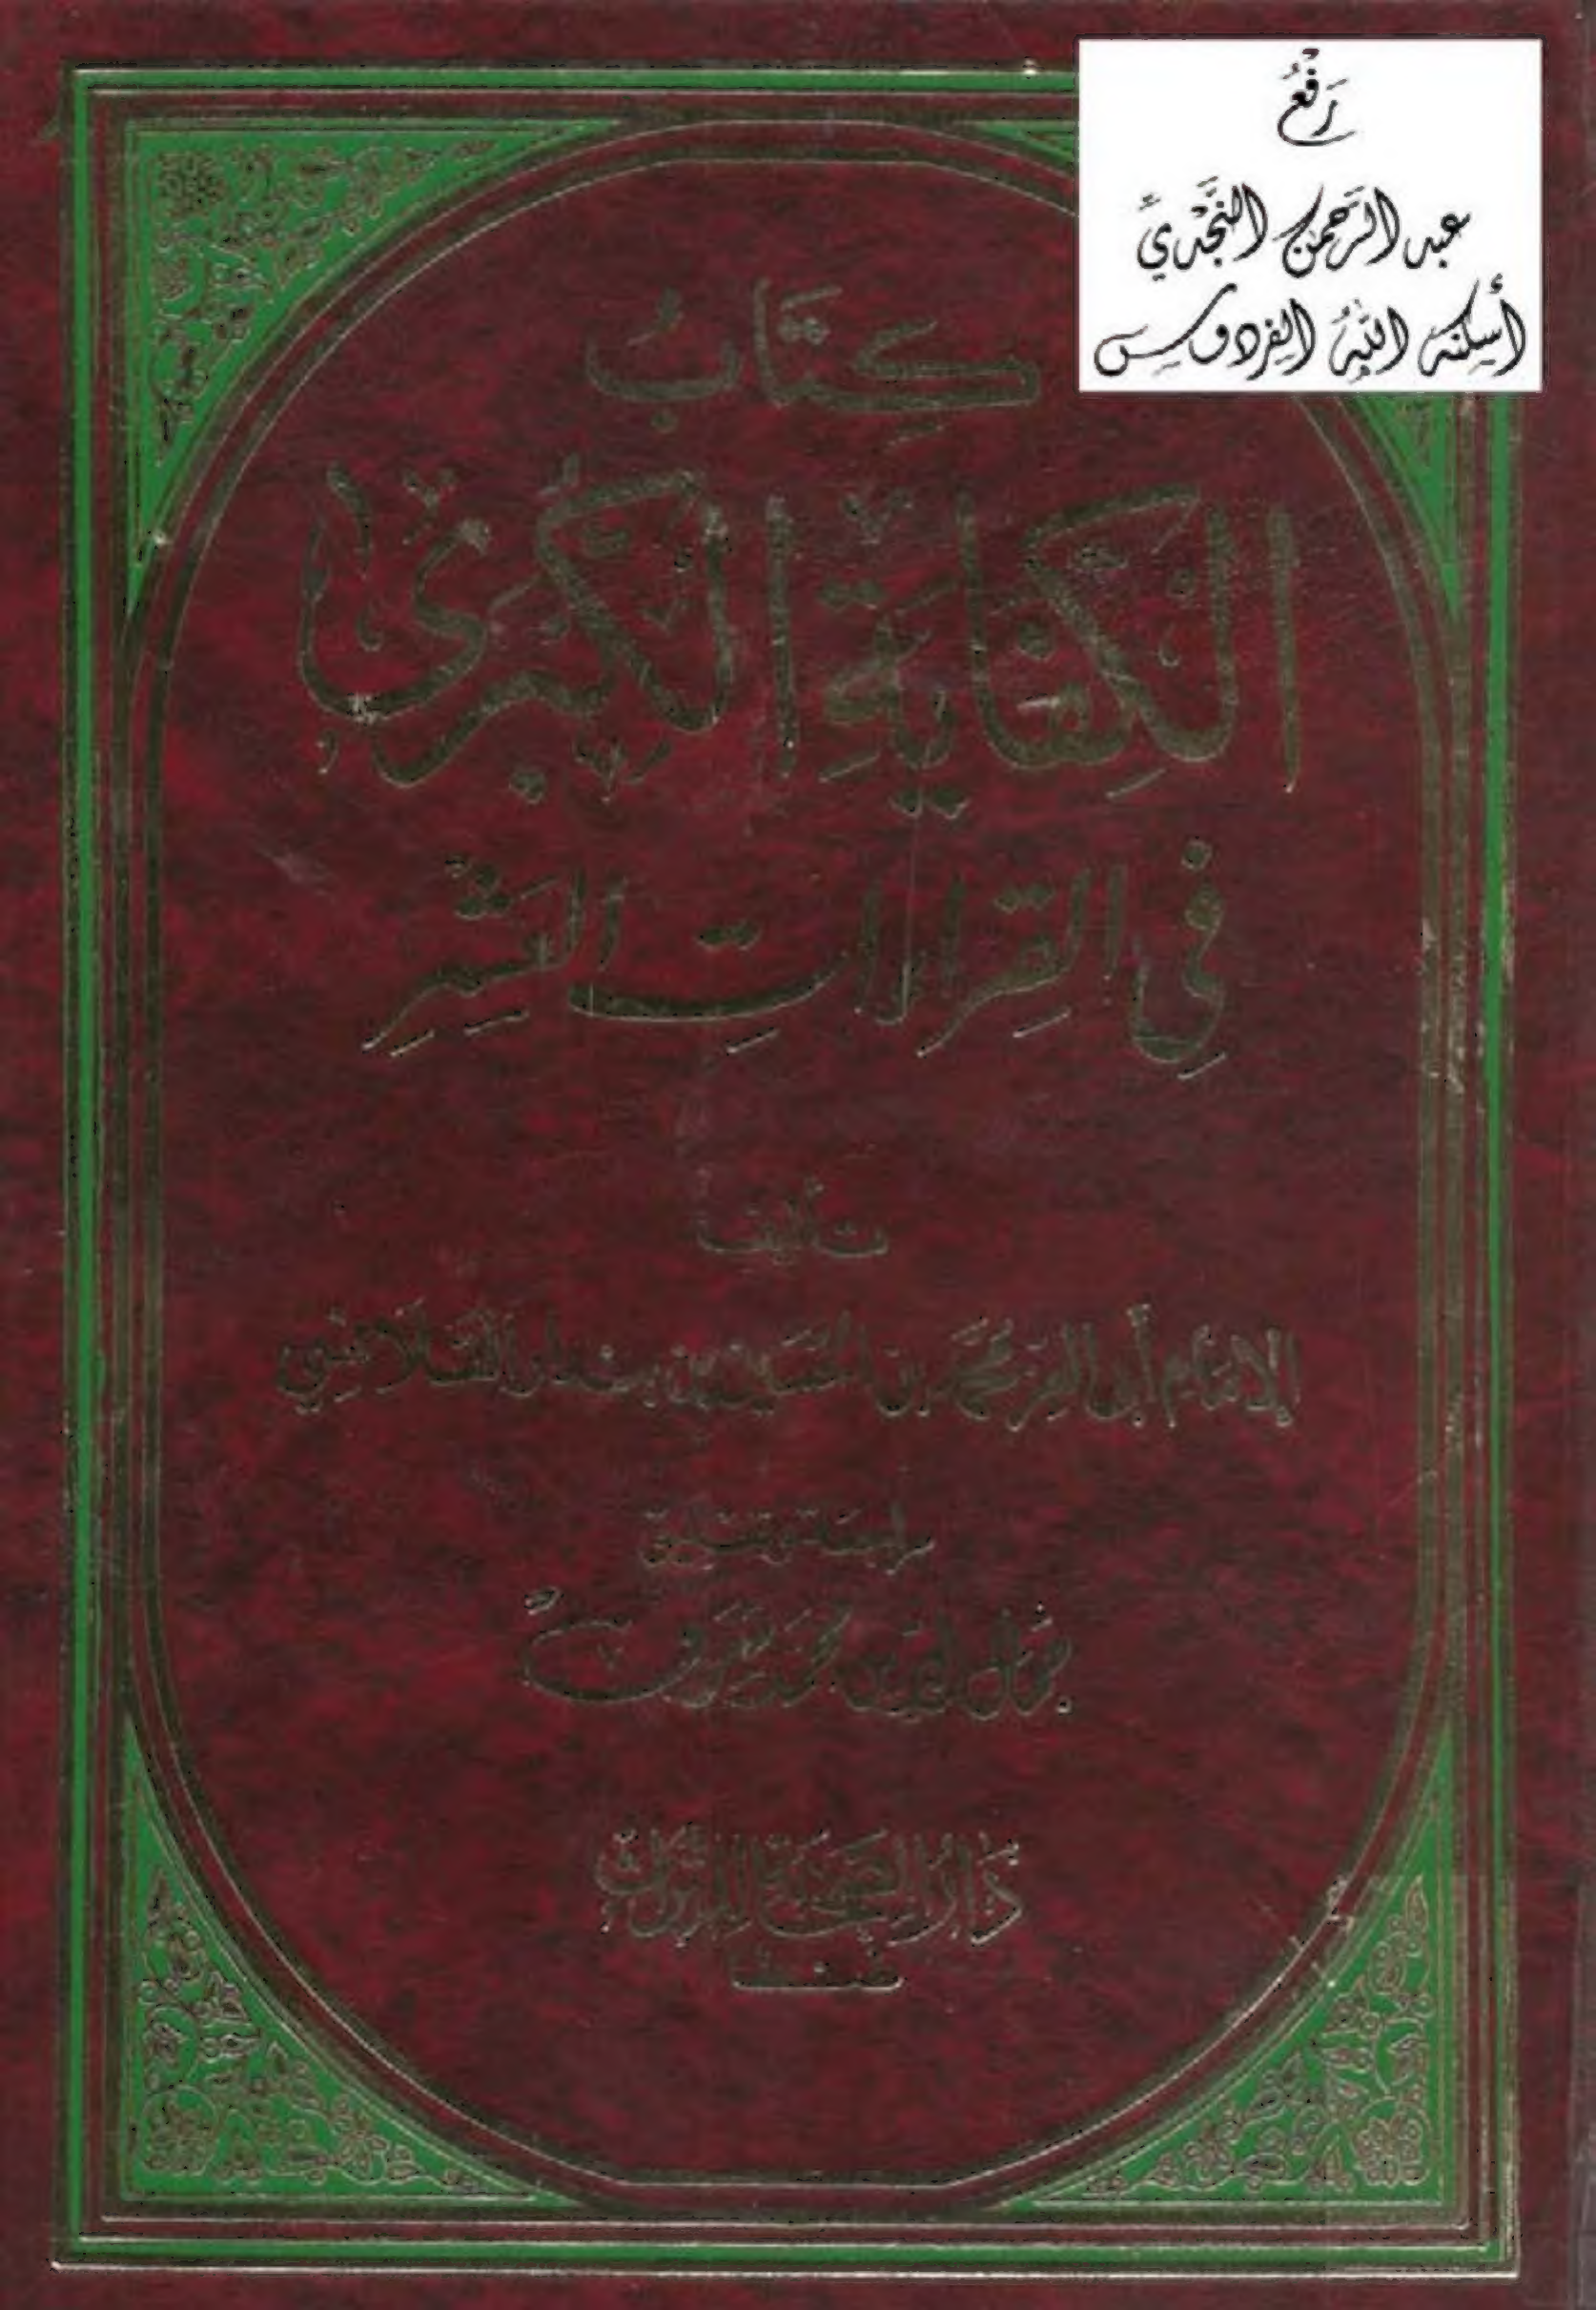 رَفْعُ
عبد الرَّحمن النَّجْديِّ
أسكنه اللهُ الفردوس
كِتَابُ
الكِفَايَةِ الكُبْرَى
فِي القِرَاءَاتِ العَشْرِ
تأليف
الإمَام أبي العِز محمّد بن الحسَين بن بندار القَلَانِسي
مراجعة وتعليق
جمال الدين محمد شرف
دَارُ الصَّحَابَةِ لِلتُّرَاثِ
بطنطا